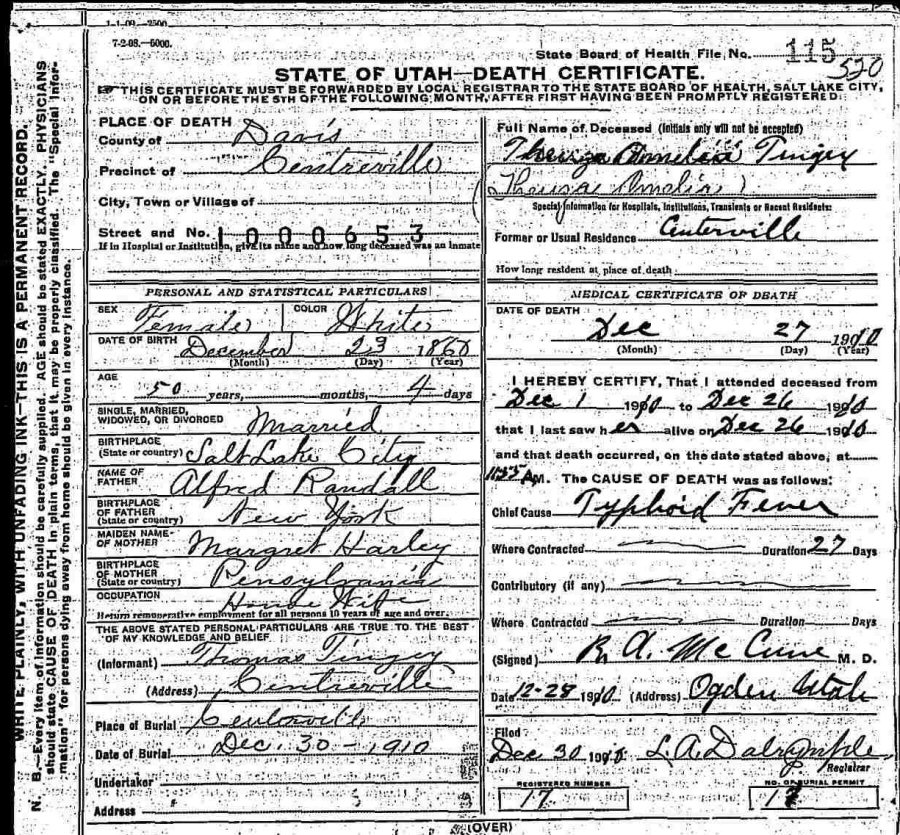 1-1-09.—2500.
7-2-08.—5000.
State Board of Health File No. 115
520
STATE OF UTAH—DEATH CERTIFICATE.
THIS CERTIFICATE MUST BE FORWARDED BY LOCAL REGISTRAR TO THE STATE BOARD OF HEALTH, SALT LAKE CITY,
ON OR BEFORE THE 5TH OF THE FOLLOWING MONTH, AFTER FIRST HAVING BEEN PROMPTLY REGISTERED.
WRITE PLAINLY, WITH UNFADING INK—THIS IS A PERMANENT RECORD.
N. B.—Every item of information should be carefully supplied. AGE should be stated EXACTLY. PHYSICIANS
should state CAUSE OF DEATH in plain terms, that it may be properly classified. The "Special Infor-
mation" for persons dying away from home should be given in every instance.
PLACE OF DEATH
County of Davis
Precinct of Centreville
City, Town or Village of
Street and No. 1000653
If in Hospital or Institution, give its name and how long deceased was an inmate
PERSONAL AND STATISTICAL PARTICULARS
SEX Female COLOR White
DATE OF BIRTH December 23 1860
(Month) (Day) (Year)
AGE
50 years, months, 4 days
SINGLE, MARRIED,
WIDOWED, OR DIVORCED Married
BIRTHPLACE
(State or country) Salt Lake City
NAME OF
FATHER Alfred Randall
BIRTHPLACE
OF FATHER
(State or country) New York
MAIDEN NAME
OF MOTHER Margret Harley
BIRTHPLACE
OF MOTHER
(State or country) Pensylvania
OCCUPATION House Wife
Return remunerative employment for all persons 10 years of age and over.
THE ABOVE STATED PERSONAL PARTICULARS ARE TRUE TO THE BEST
OF MY KNOWLEDGE AND BELIEF
(Informant) Thomas Tingey
(Address) Centreville
Place of Burial Centerville
Date of Burial Dec. 30 - 1910
Undertaker
Address
Full Name of Deceased (Initials only will not be accepted)
Amelia Tingey
(Theresa Amelia)
Special Information for Hospitals, Institutions, Transients or Recent Residents:
Former or Usual Residence Centerville
How long resident at place of death
MEDICAL CERTIFICATE OF DEATH
DATE OF DEATH
Dec 27 1910
(Month) (Day) (Year)
I HEREBY CERTIFY, That I attended deceased from
Dec 1 1910 to Dec 26 1910
that I last saw her alive on Dec 26 1910
and that death occurred, on the date stated above, at
1155 AM. The CAUSE OF DEATH was as follows:
Chief Cause Typhoid Fever
Where Contracted Duration 27 Days
Contributory (if any)
Where Contracted Duration Days
(Signed) R. A. McCune M. D.
Date 12-28 1910 (Address) Ogden Utah
Filed
Dec 30 1910 L. A. Dalrymple
Registrar
REGISTERED NUMBER
17
NO. OF BURIAL PERMIT
17
(OVER)